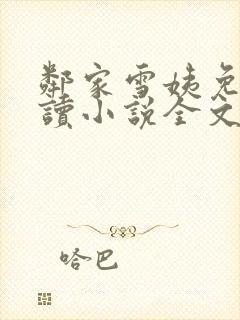 鄰家雪姨免
讀小說全文
哈巴